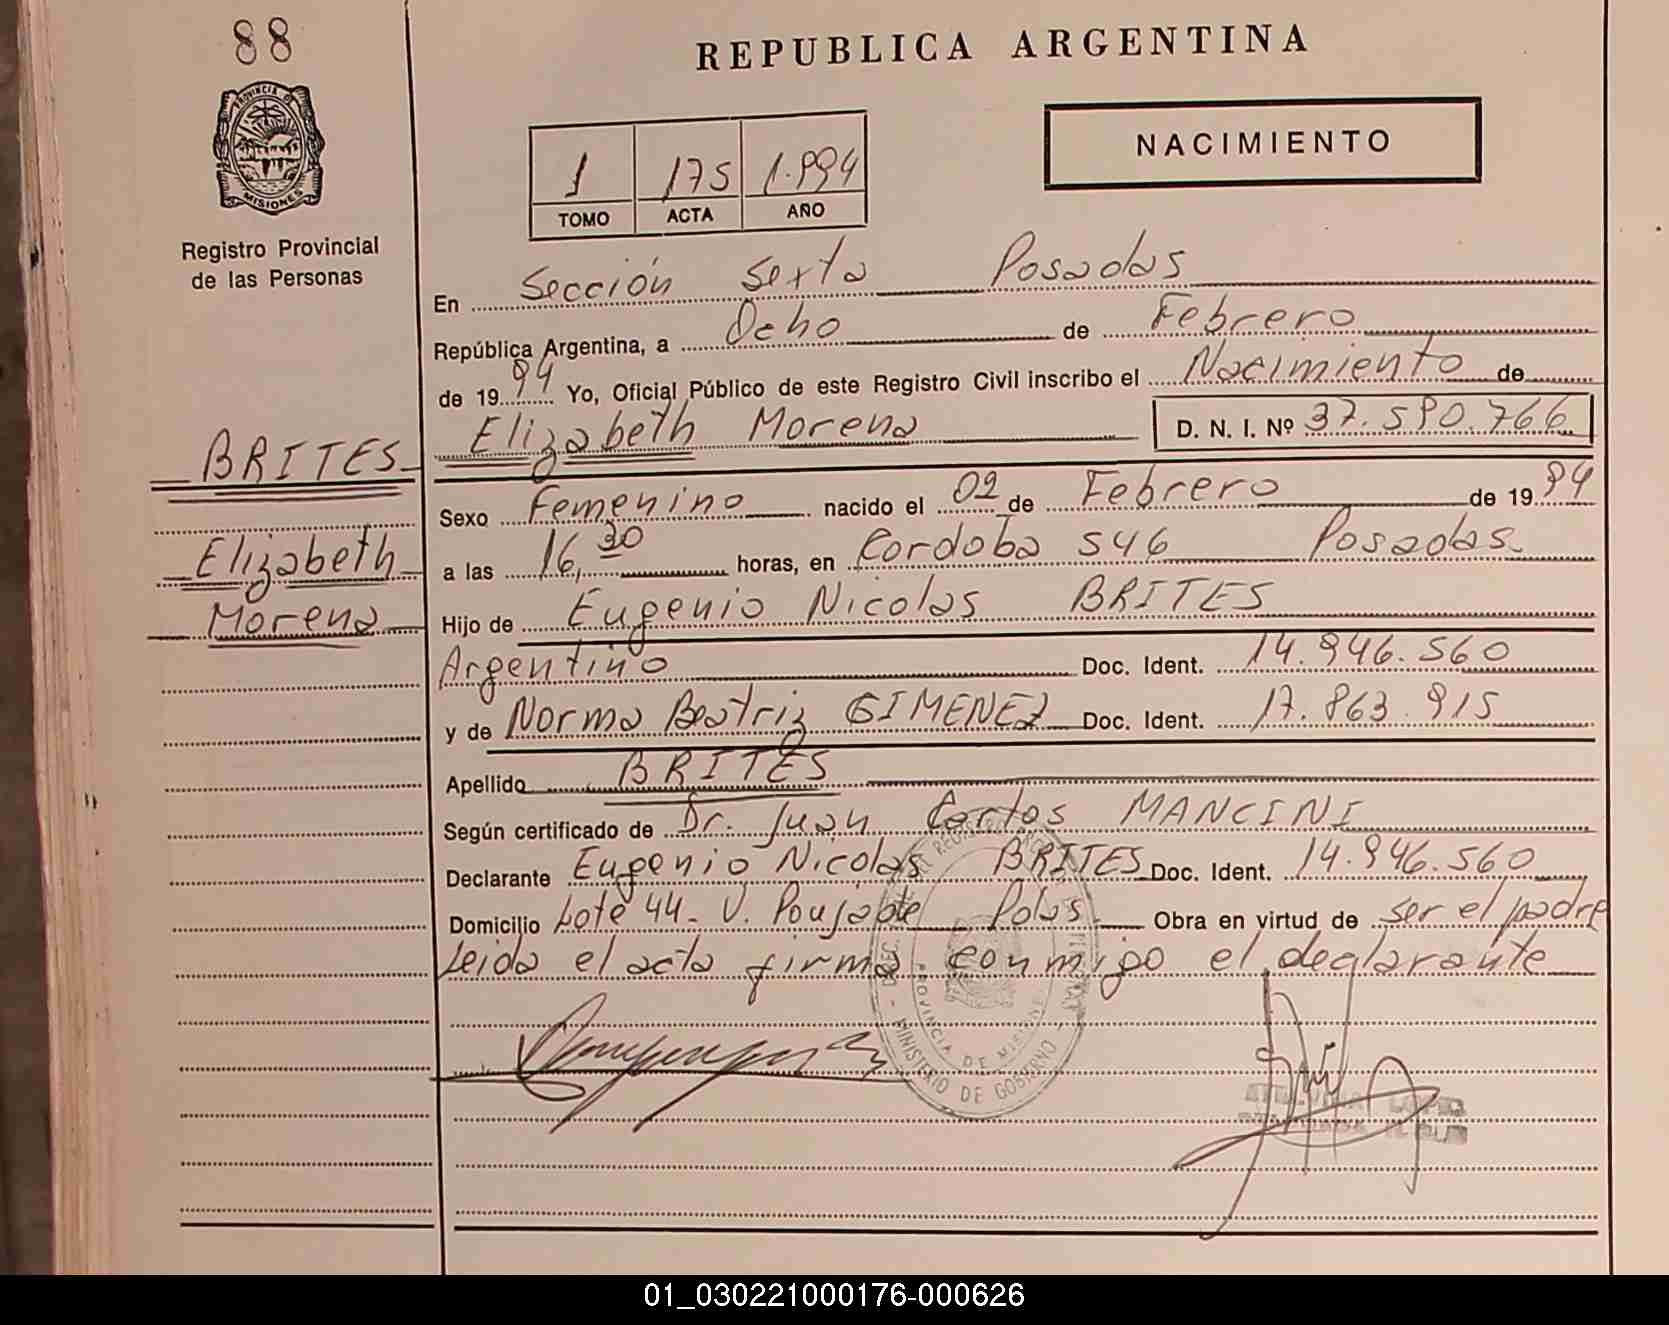 88
REPUBLICA ARGENTINA
PROVINCIA DE
MISIONES
Registro Provincial
de las Personas
1 175 1.994
TOMO ACTA AÑO
NACIMIENTO
En Sección Sexta Posadas
República Argentina, a Ocho de Febrero
de 1994 Yo, Oficial Público de este Registro Civil inscribo el Nacimiento de
Elizabeth Morena D. N. I. Nº 37.590.766
BRITES
Elizabeth
Morena
Sexo Femenino nacido el 02 de Febrero de 1994
a las 16,30 horas, en Cordoba 546 Posadas
Hijo de Eugenio Nicolas BRITES
Argentino Doc. Ident. 14.946.560
y de Norma Beatriz GIMENEZ Doc. Ident. 17.863.915
Apellido BRITES
Según certificado de Dr. Juan Carlos MANCINI
Declarante Eugenio Nicolas BRITES Doc. Ident. 14.946.560
Domicilio Lote 44- V. Poujade Pdas Obra en virtud de ser el padre
Leida el acta firma conmigo el declarante
PROVINCIA DE MISIONES
MINISTERIO DE GOBIERNO
01_030221000176-000626